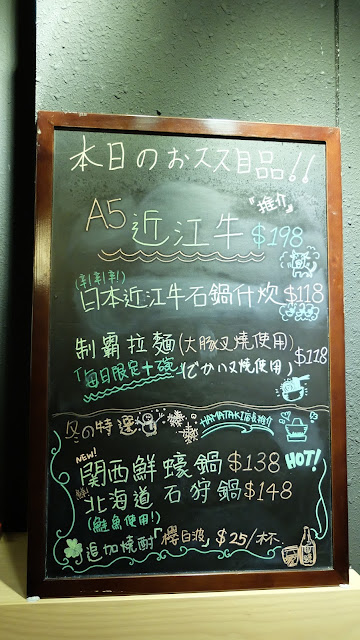 本日のおスス目品!!
「推介」
A5 近江牛 $198
(剩!剩!剩!)
日本近江牛石鍋什炊 $118
制霸拉麵(大豚叉燒使用)
「每日限定十碗」(でかい叉燒使用) $118
冬の特選 HAMATAKI店長推介
NEW!
関西鮮蠔鍋 $138 HOT!
北海道石狩鍋 $148
(鮭魚使用!)
追加焼酎「櫻白波」$25/杯